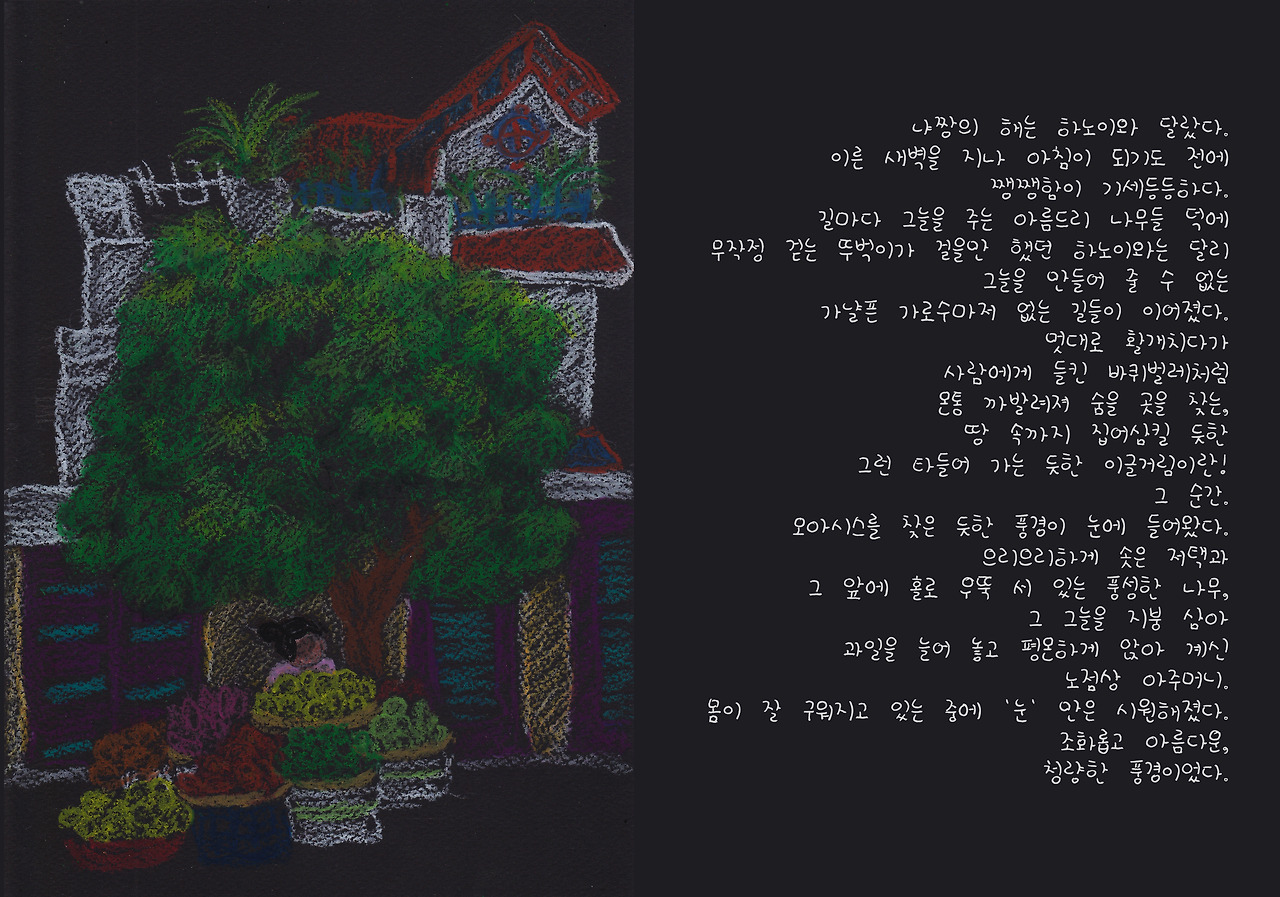 냐짱의 해는 하노이와 달랐다.
이른 새벽을 지나 아침이 되기도 전에
쨍쨍함이 기세등등하다.
길마다 그늘을 주는 아름드리 나무들 덕에
무작정 걷는 뚜벅이가 걸을만 했던 하노이와는 달리
그늘을 만들어 줄 수 없는
가냘픈 가로수마저 없는 길들이 이어졌다.
멋대로 활개치다가
사람에게 들킨 바퀴벌레처럼
온통 까발려져 숨을 곳을 찾는,
땅 속까지 집어삼킬 듯한
그런 타들어 가는 듯한 이글거림이란!
그 순간.
오아시스를 찾은 듯한 풍경이 눈에 들어왔다.
으리으리하게 솟은 저택과
그 앞에 홀로 우뚝 서 있는 풍성한 나무,
그 그늘을 지붕 삼아
과일을 늘어 놓고 평온하게 앉아 계신
노점상 아주머니.
몸이 잘 구워지고 있는 중에 '눈' 만은 시원해졌다.
조화롭고 아름다운,
청량한 풍경이었다.